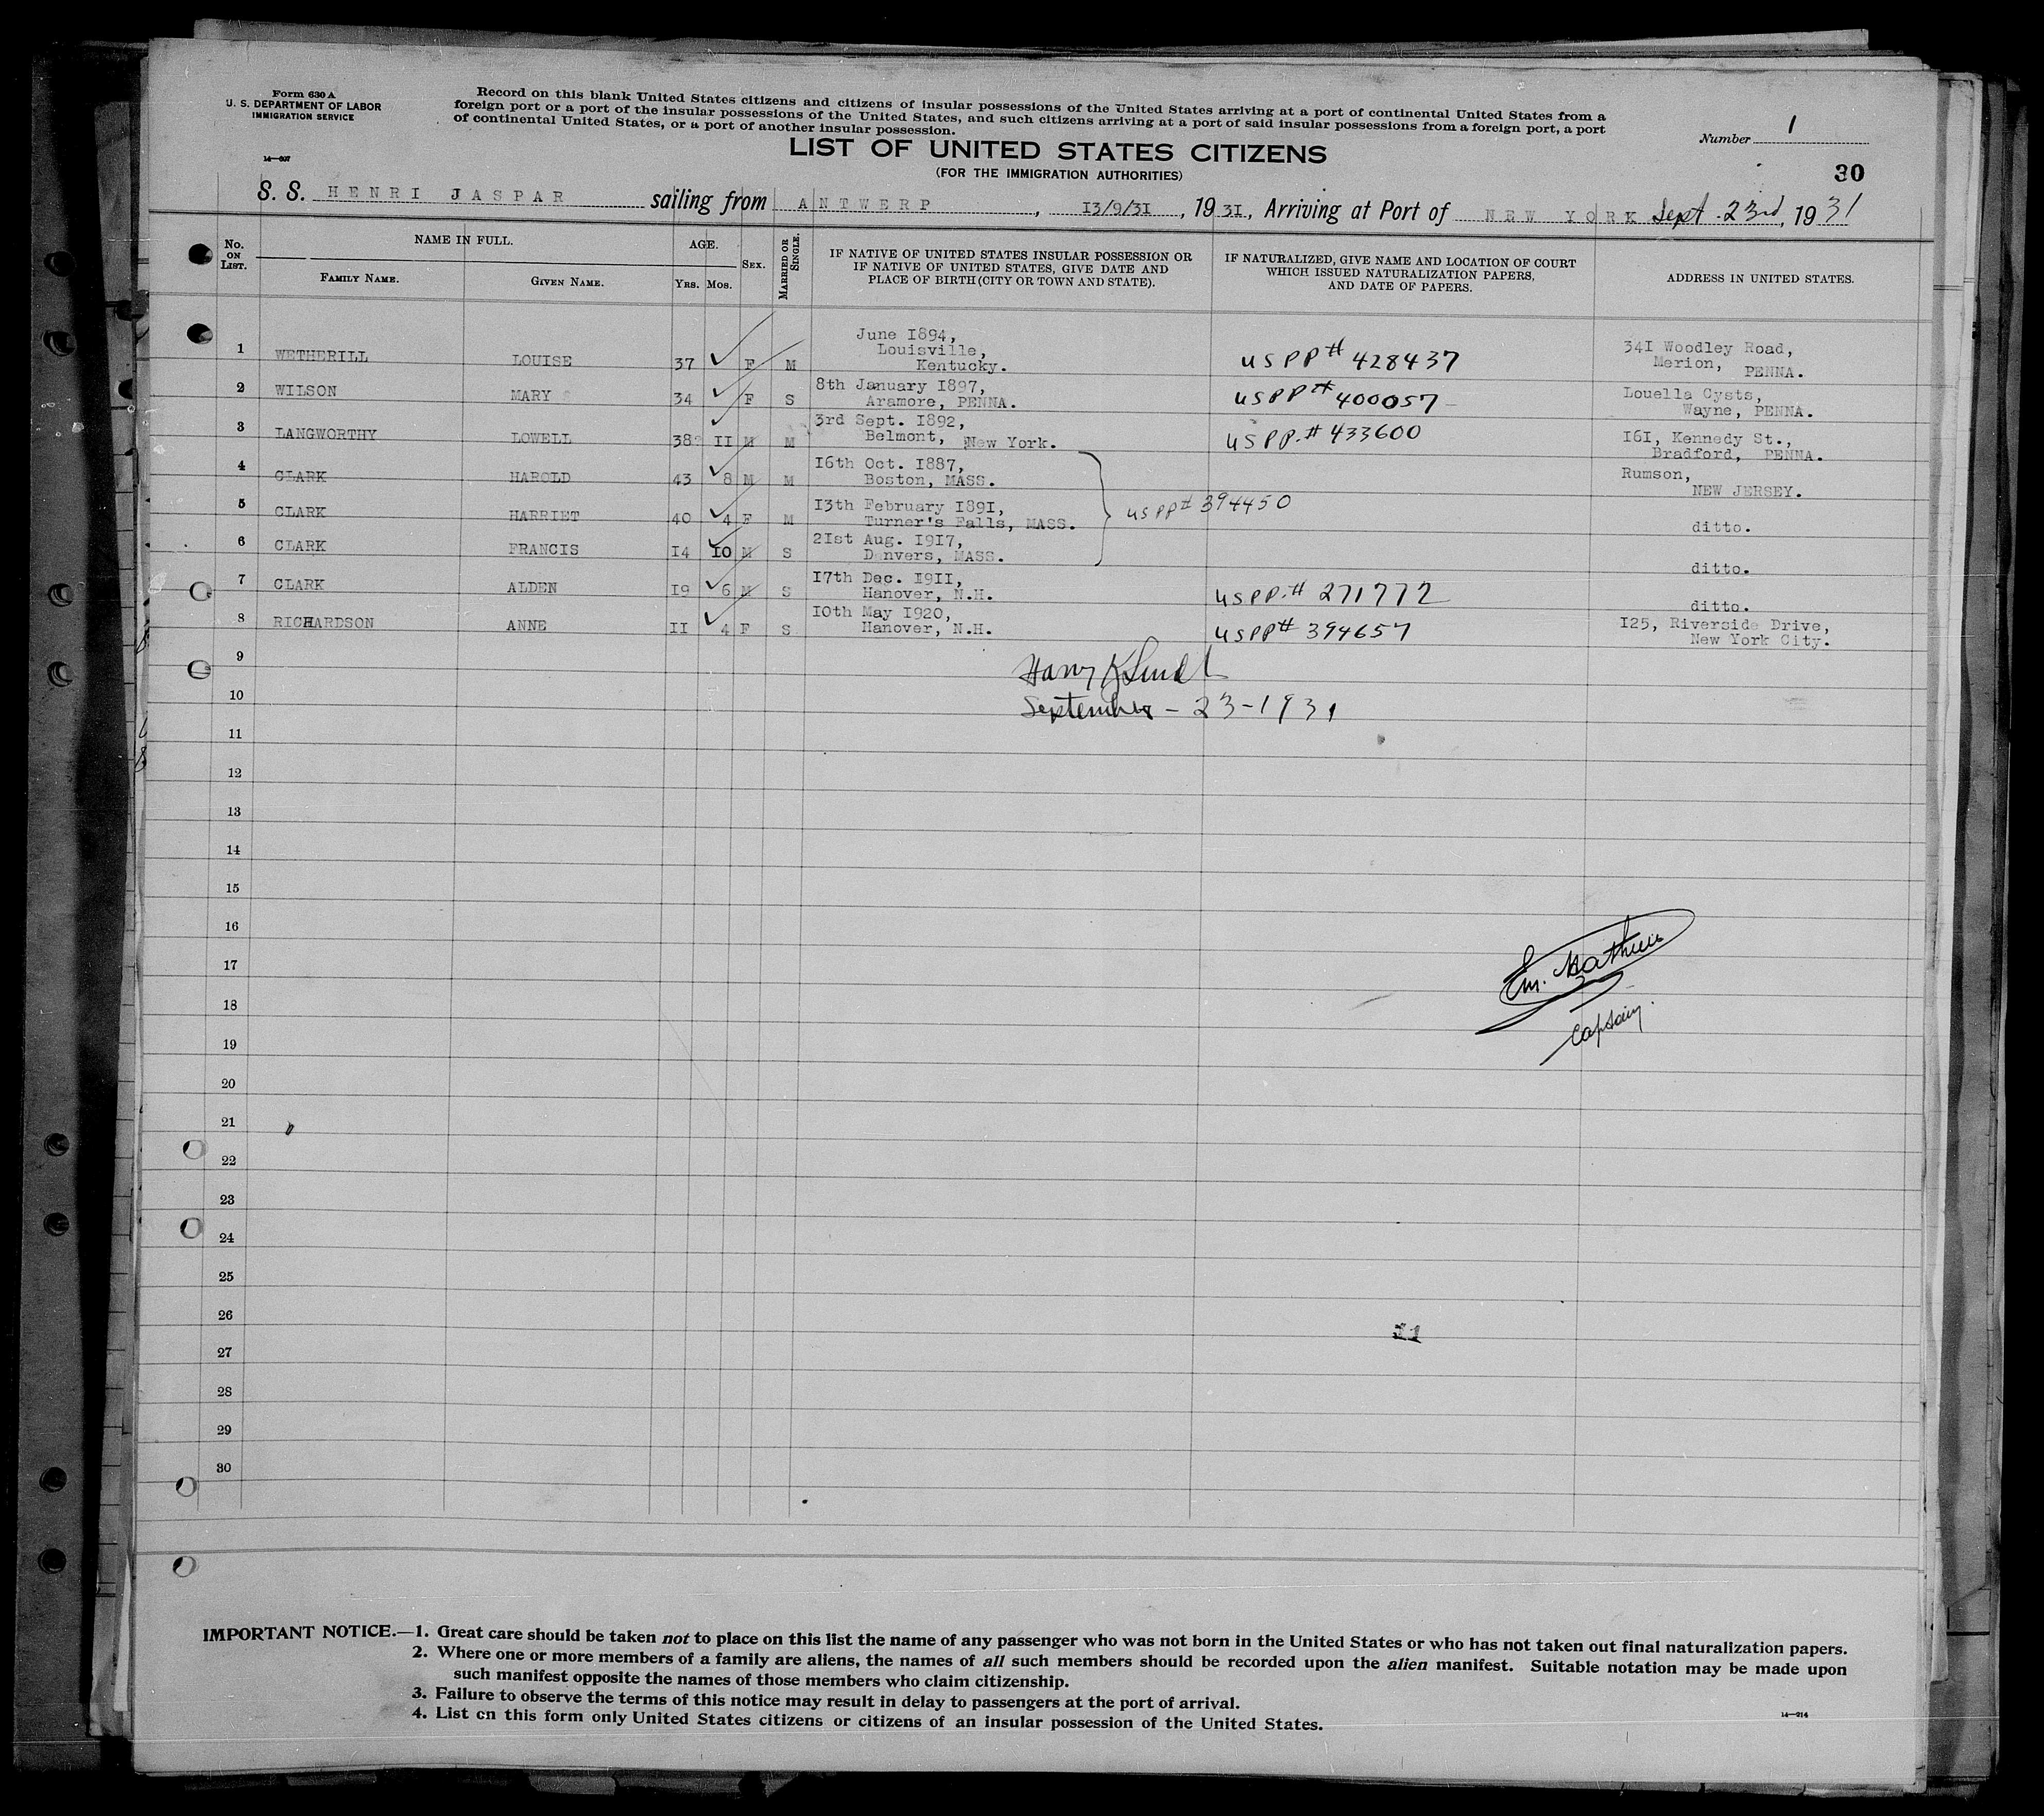 Form 630 A
U. S. DEPARTMENT OF LABOR
IMMIGRATION SERVICE
14—607
Record on this blank United States citizens and citizens of insular possessions of the United States arriving at a port of continental United States from a
foreign port or a port of the insular possessions of the United States, and such citizens arriving at a port of said insular possessions from a foreign port, a port
of continental United States, or a port of another insular possession.
Number 1
LIST OF UNITED STATES CITIZENS
(FOR THE IMMIGRATION AUTHORITIES)
30
S. S. HENRI JASPAR sailing from ANTWERP, 13/9/31, 1931, Arriving at Port of NEW YORK Sept. 23rd, 1931
No. ON LIST.
NAME IN FULL.
FAMILY NAME.
GIVEN NAME.
AGE.
YRS. MOS.
SEX.
MARRIED OR SINGLE.
IF NATIVE OF UNITED STATES INSULAR POSSESSION OR
IF NATIVE OF UNITED STATES, GIVE DATE AND
PLACE OF BIRTH (CITY OR TOWN AND STATE).
IF NATURALIZED, GIVE NAME AND LOCATION OF COURT
WHICH ISSUED NATURALIZATION PAPERS,
AND DATE OF PAPERS.
ADDRESS IN UNITED STATES.
1 WETHERILL LOUISE 37 F M June 1894, Louisville, Kentucky. USPP# 428437 341 Woodley Road, Merion, PENNA.
2 WILSON MARY S 34 F S 8th January 1897, Aramore, PENNA. USPP# 400057 Louella Cysts, Wayne, PENNA.
3 LANGWORTHY LOWELL 38 11 M M 3rd Sept. 1892, Belmont, New York. USPP.# 433600 161, Kennedy St., Bradford, PENNA.
4 CLARK HAROLD 43 8 M M 16th Oct. 1887, Boston, MASS. Rumson, NEW JERSEY.
5 CLARK HARRIET 40 4 F M 13th February 1891, Turner's Falls, MASS. USPP# 394450 ditto.
6 CLARK FRANCIS 14 10 M S 21st Aug. 1917, Danvers, MASS. ditto.
7 CLARK ALDEN 19 6 M S 17th Dec. 1911, Hanover, N.H. USPP.# 271772 ditto.
8 RICHARDSON ANNE 11 4 F S 10th May 1920, Hanover, N.H. USPP# 394657 125, Riverside Drive, New York City.
9 Harry K
10 September - 23-1931
11
12
13
14
15
16
17 Em. Mathieu
18
19 Captain.
20
21
22
23
24
25
26
11
27
28
29
30
IMPORTANT NOTICE.—1. Great care should be taken not to place on this list the name of any passenger who was not born in the United States or who has not taken out final naturalization papers.
2. Where one or more members of a family are aliens, the names of all such members should be recorded upon the alien manifest. Suitable notation may be made upon
such manifest opposite the names of those members who claim citizenship.
3. Failure to observe the terms of this notice may result in delay to passengers at the port of arrival.
4. List on this form only United States citizens or citizens of an insular possession of the United States.
14—214